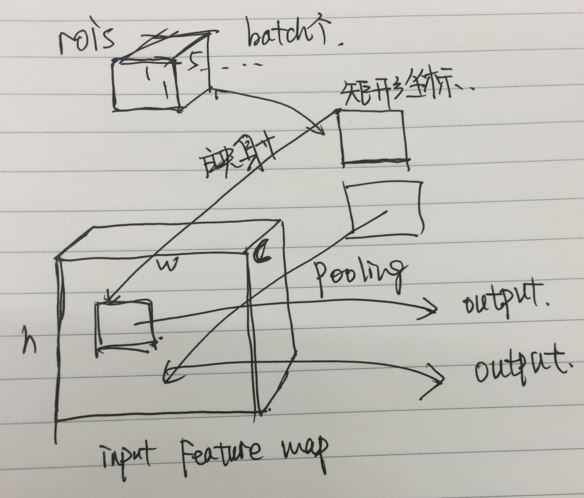 rois
batch个.
1 5 ....
1
矩形坐标..
映射
w
c
pooling
h
output.
output.
input Feature map